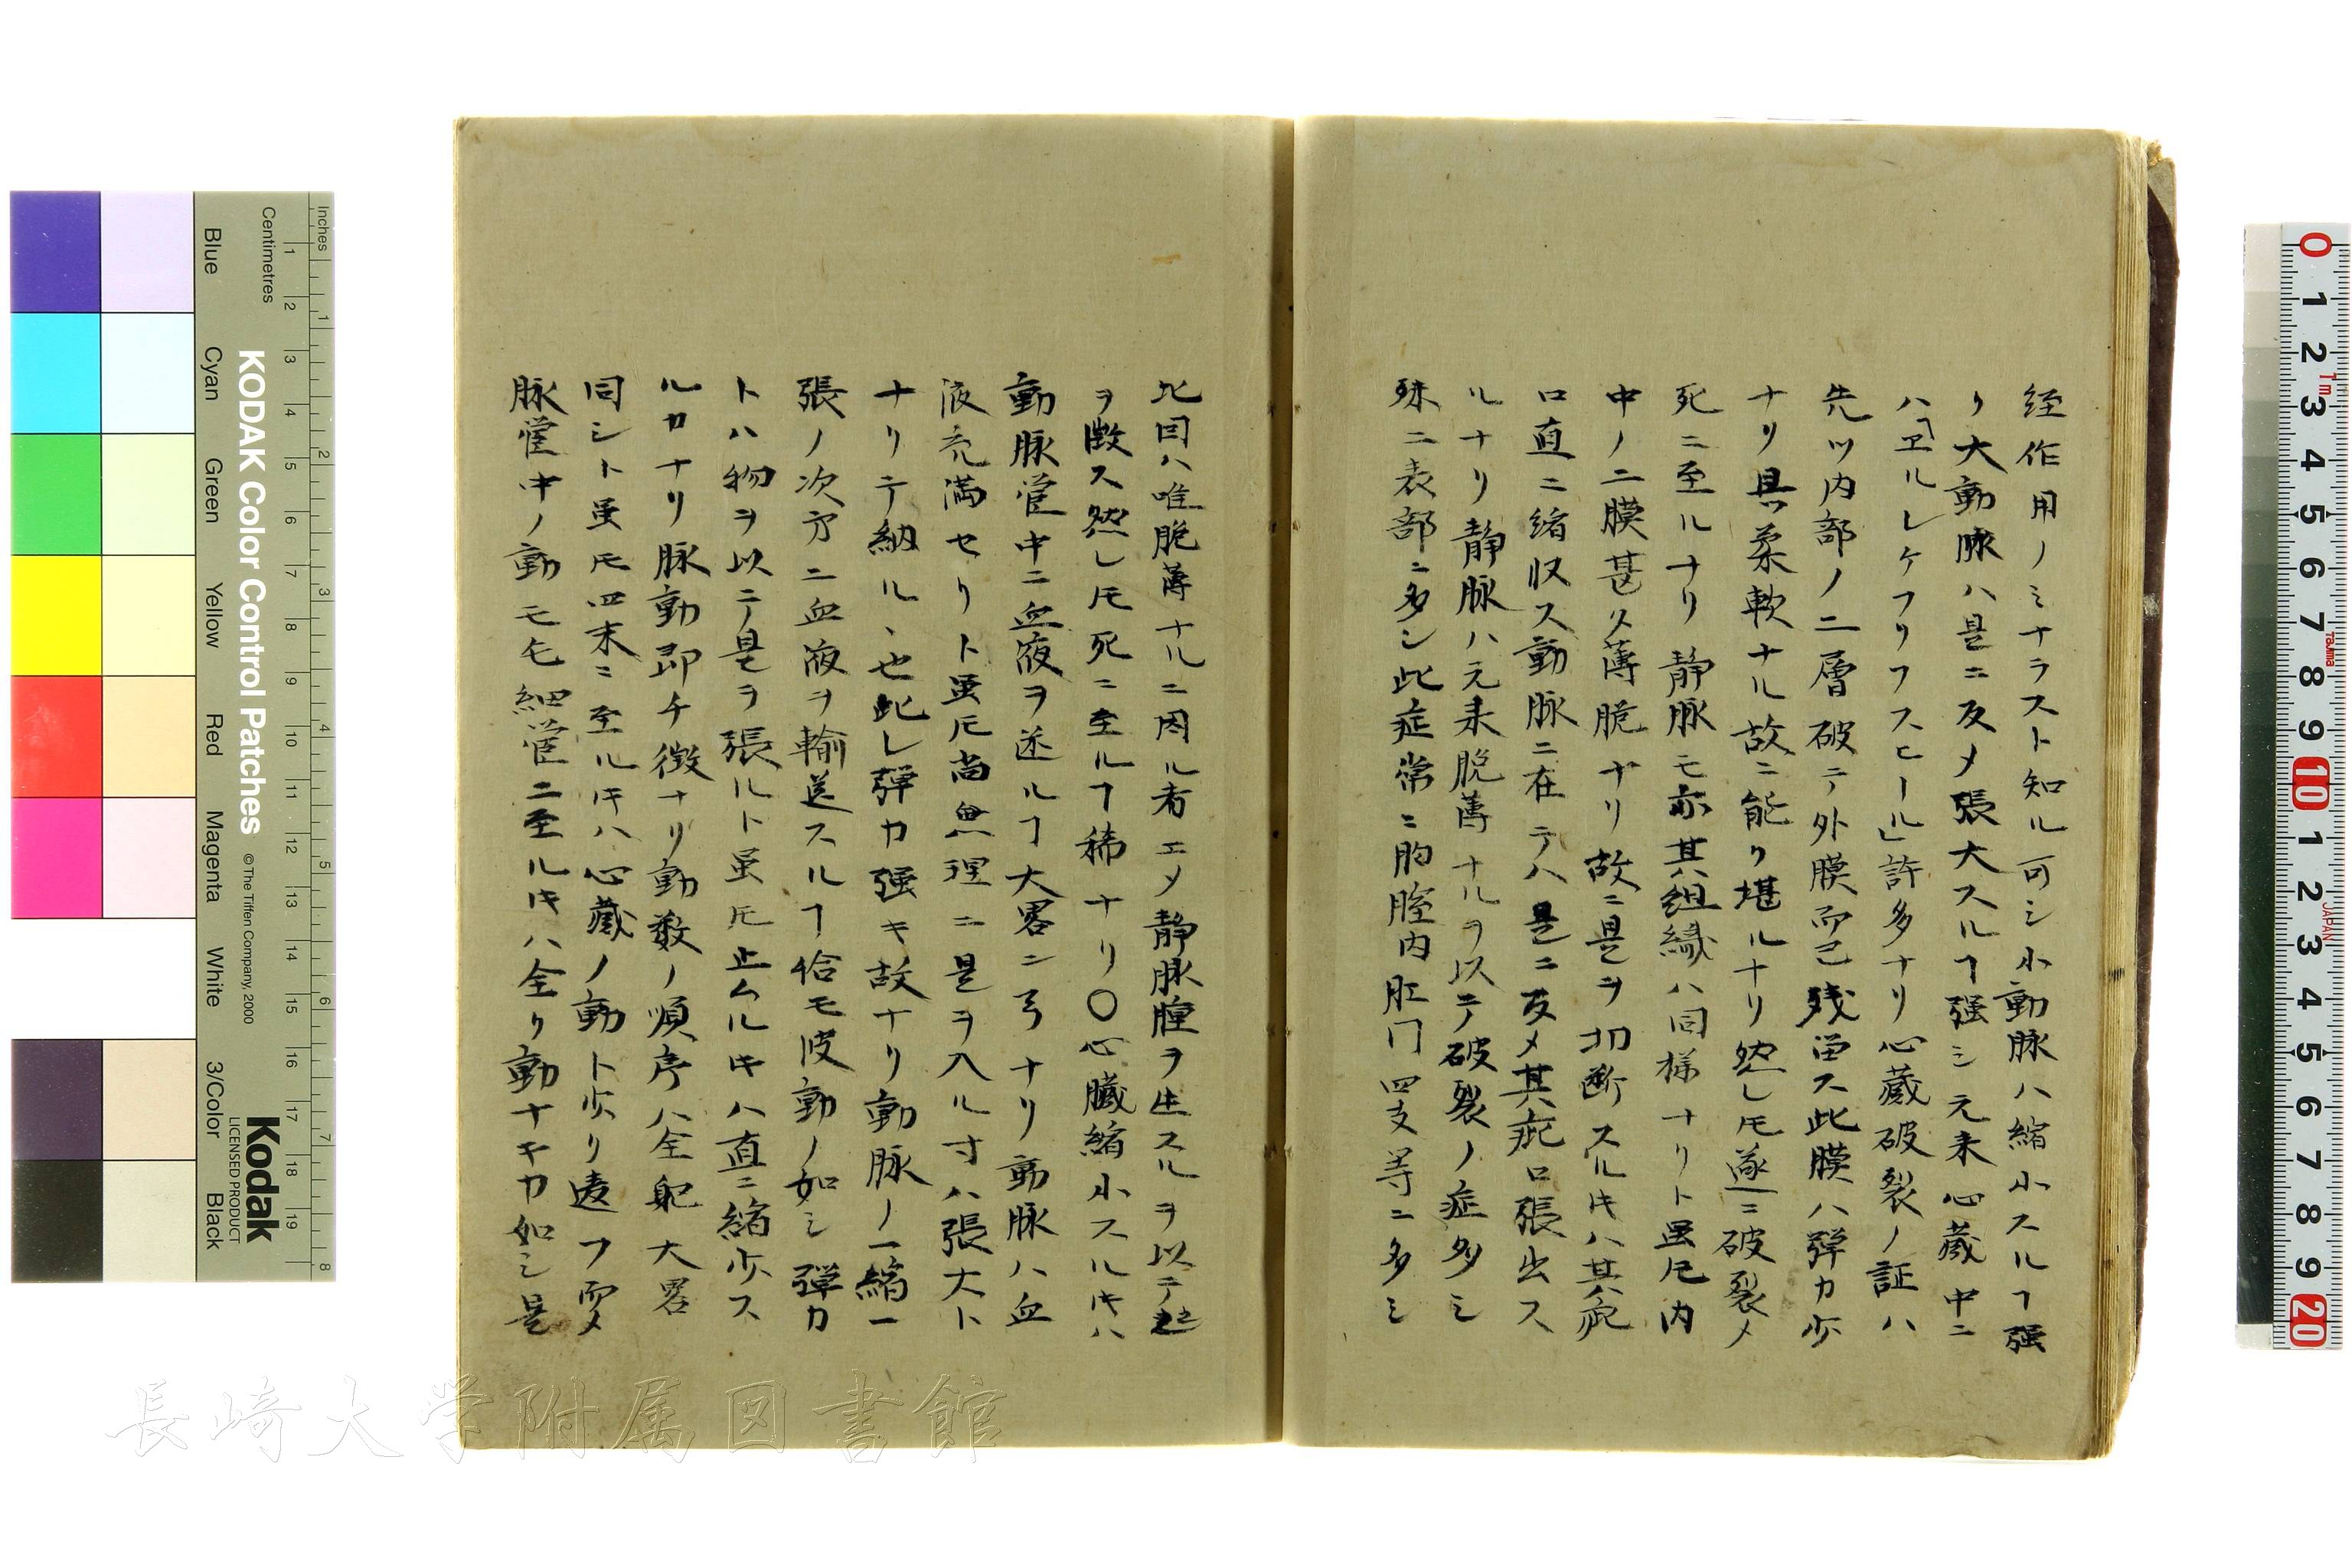 経作用ノミナラスト知ル可シ小動脉ハ縮小スルヿ强
ク大動脉ハ是ニ反メ張大スルヿ强シ元来心蔵中ニ
ハ「ヱルレケフリフスヒール」許多ナリ心蔵破裂ノ証ハ
先ツ内部ノ二層破テ外膜而已残畄ス此膜ハ弾力少
ナリ具柔軟ナル故ニ能ク堪ルナリ然レ𪜈遂ニ破裂メ
死ニ至ルナリ静脉モ亦其組織ハ同様ナリト虽𪜈内
中ノ二膜甚タ薄脆ナリ故ニ是ヲ切断スルㇳキハ其疵
口直ニ縮収ス動脉ニ在テハ是ニ反メ其疵口張出ス
ルナリ静脉ハ元来脆薄ナルヲ以テ破裂ノ症多シ
殊ニ表部ニ多シ此症常ニ胸腔内肛门四支等ニ多シ
此因ハ唯脆薄ナルニ因ル者ニメ静脉腫ヲ生スルヲ以テ是
ヲ徴ス然レ𪜈死ニ至ルヿ稀ナリ○心臓縮小スルㇳキハ
動脉管中ニ血液ヲ送ルヿ大畧二弓ナリ動脉ハ血
液充満セリト虽𪜈尚無理ニ是ヲ入ル寸ハ張大ト
ナリテ納ルヽ也此レ弾力强キ故ナリ動脉ノ一縮一
張ノ次第ニ血液ヲ輸送スルヿ恰モ波動ノ如シ弾力
トハ物ヲ以テ是ヲ張ルト虽𪜈止ムルㇳキハ直ニ縮少ス
ル力ナリ脉動即チ徴ナリ動数ノ順序ハ全躯大畧
同シト虽𪜈四末ニ至ルㇳキハ心蔵ノ動ト少ク違フ而メ
脉管中ノ動モ毛細管ニ至ルㇳキハ全ク動ナキカ如シ是
KODAK Color Control Patches
© The Tiffen Company, 2000
Kodak
LICENSED PRODUCT
Inches
Centimetres
Blue
Cyan
Green
Yellow
Red
Magenta
White
3/Color
Black
長崎大学附属図書館